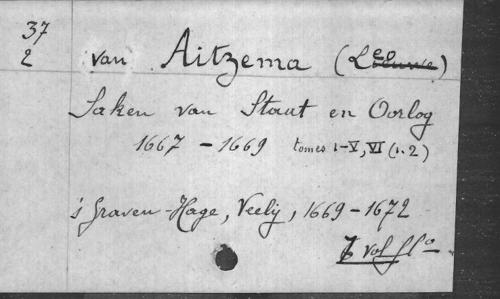 37
2
van Aitzema (Leo)
Saken van Staat en Oorlog
1667 - 1669 tomes I-V, VI (1.2)
's Graven-Hage, Veely, 1669-1672
7 vol flo